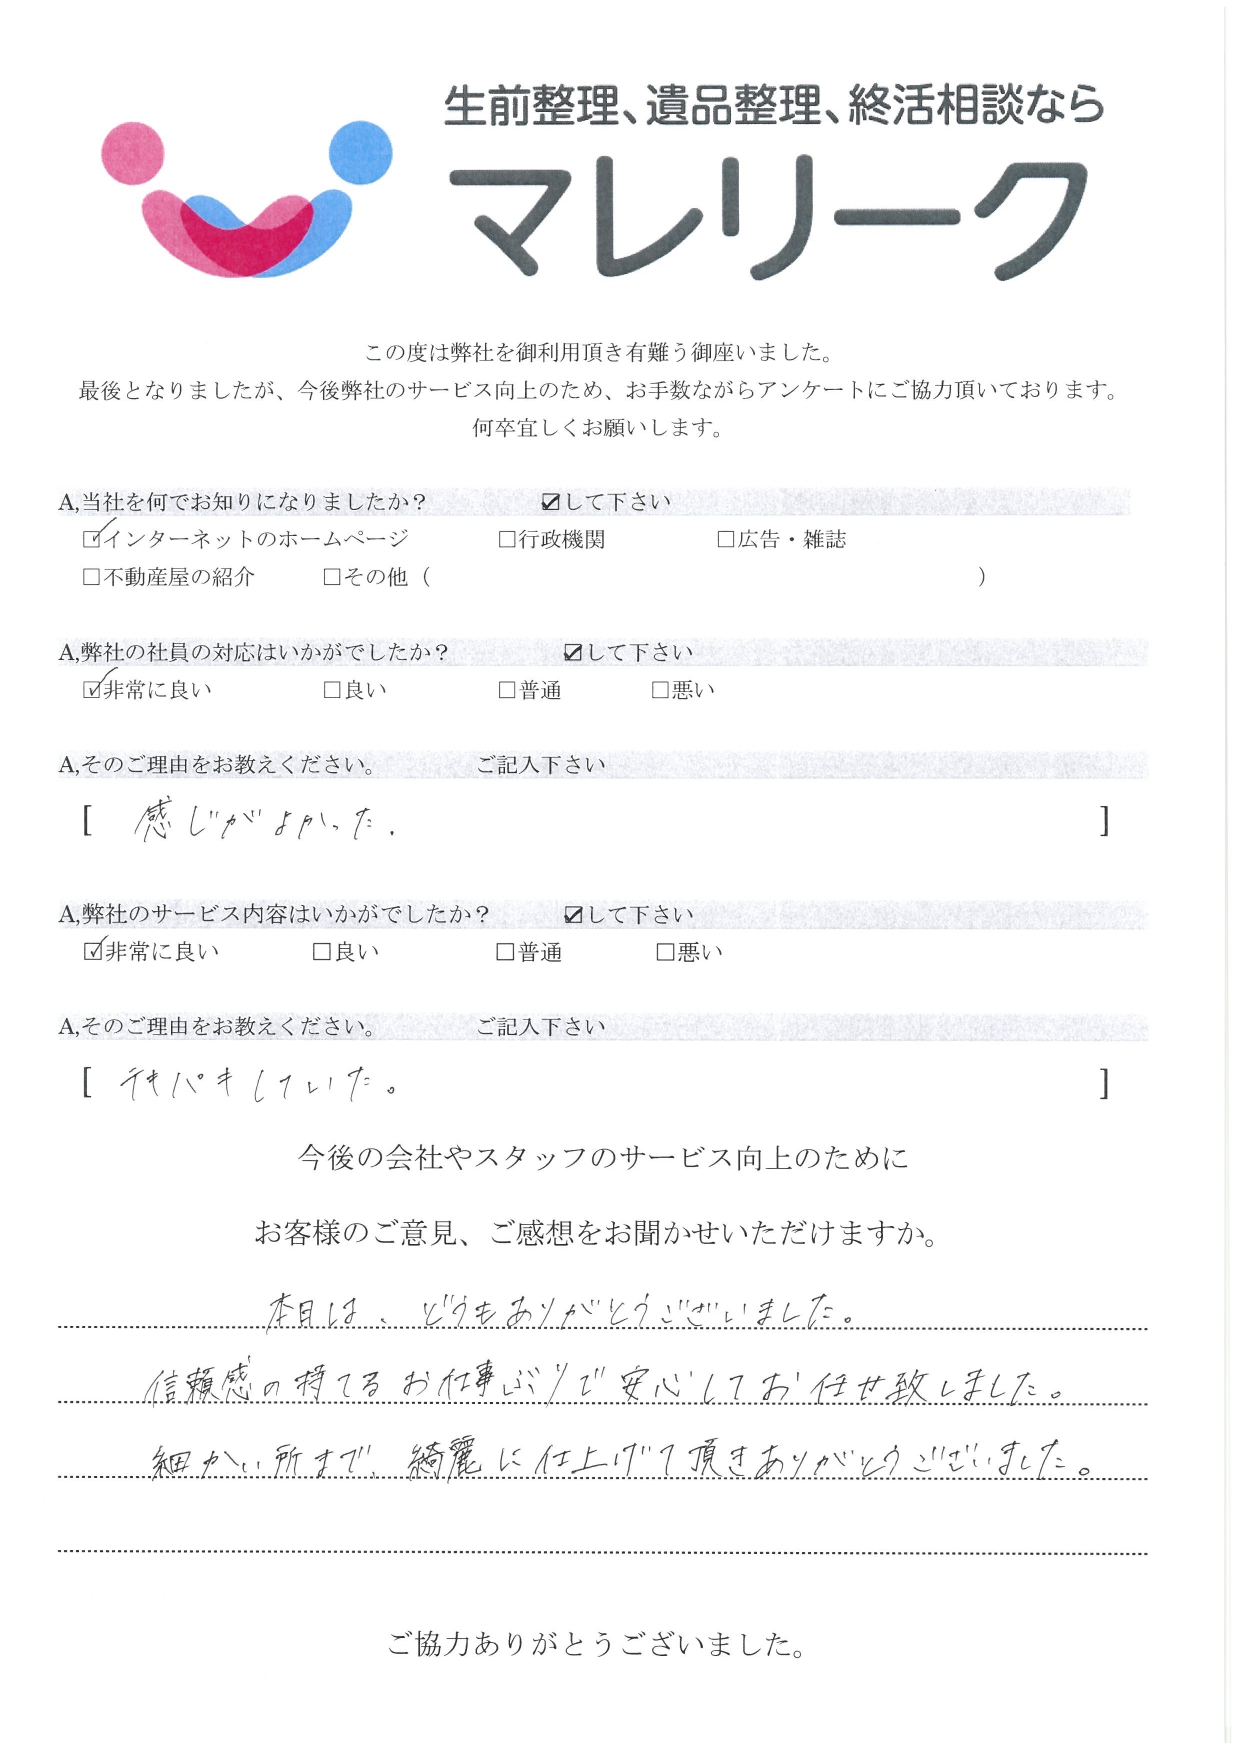 生前整理、遺品整理、終活相談なら
マレリーク
この度は弊社を御利用頂き有難う御座いました。
最後となりましたが、今後弊社のサービス向上のため、お手数ながらアンケートにご協力頂いております。
何卒宜しくお願いします。
A,当社を何でお知りになりましたか？ ☑して下さい
☑インターネットのホームページ □行政機関 □広告・雑誌
□不動産屋の紹介 □その他（ ）
A,弊社の社員の対応はいかがでしたか？ ☑して下さい
☑非常に良い □良い □普通 □悪い
A,そのご理由をお教えください。 ご記入下さい
[ 感じがよかった. ]
A,弊社のサービス内容はいかがでしたか？ ☑して下さい
☑非常に良い □良い □普通 □悪い
A,そのご理由をお教えください。 ご記入下さい
[ テキパキしていた。 ]
今後の会社やスタッフのサービス向上のために
お客様のご意見、ご感想をお聞かせいただけますか。
本日は、どうもありがとうございました。
信頼感の持てるお仕事ぶりで安心してお任せ致しました。
細かい所まで、綺麗に仕上げて頂きありがとうございました。
ご協力ありがとうございました。